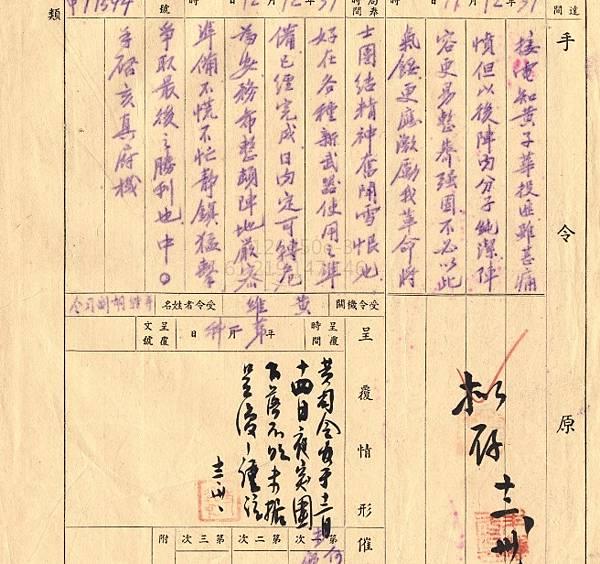 達
間
31
年
12
月
11
時
局奉
間時
31
年
12
月
12
日
號
申11594
類
手令原
接電知黃子華投匪雖甚痛
憤但以後陣內分子純潔陣
容更易整齊強固不必以此
氣餒更應激勵我革命將
士團結精神奮鬥雪恨也
好在各種新武器使用之準
備已經完成日內定可轉危
為安務希整頓陣地嚴密
準備不慌不忙靜鎮猛擊
爭取最後之勝利也中。
手啓亥真府機
受令機關
受令者姓名
黃維
呈覆情形
呈覆時間
年
月
日
呈覆文號
擬存
黃司令官于十二月
十四日夜突圍
下落不明未據
呈復
催
第一次
第二次
第三次
附